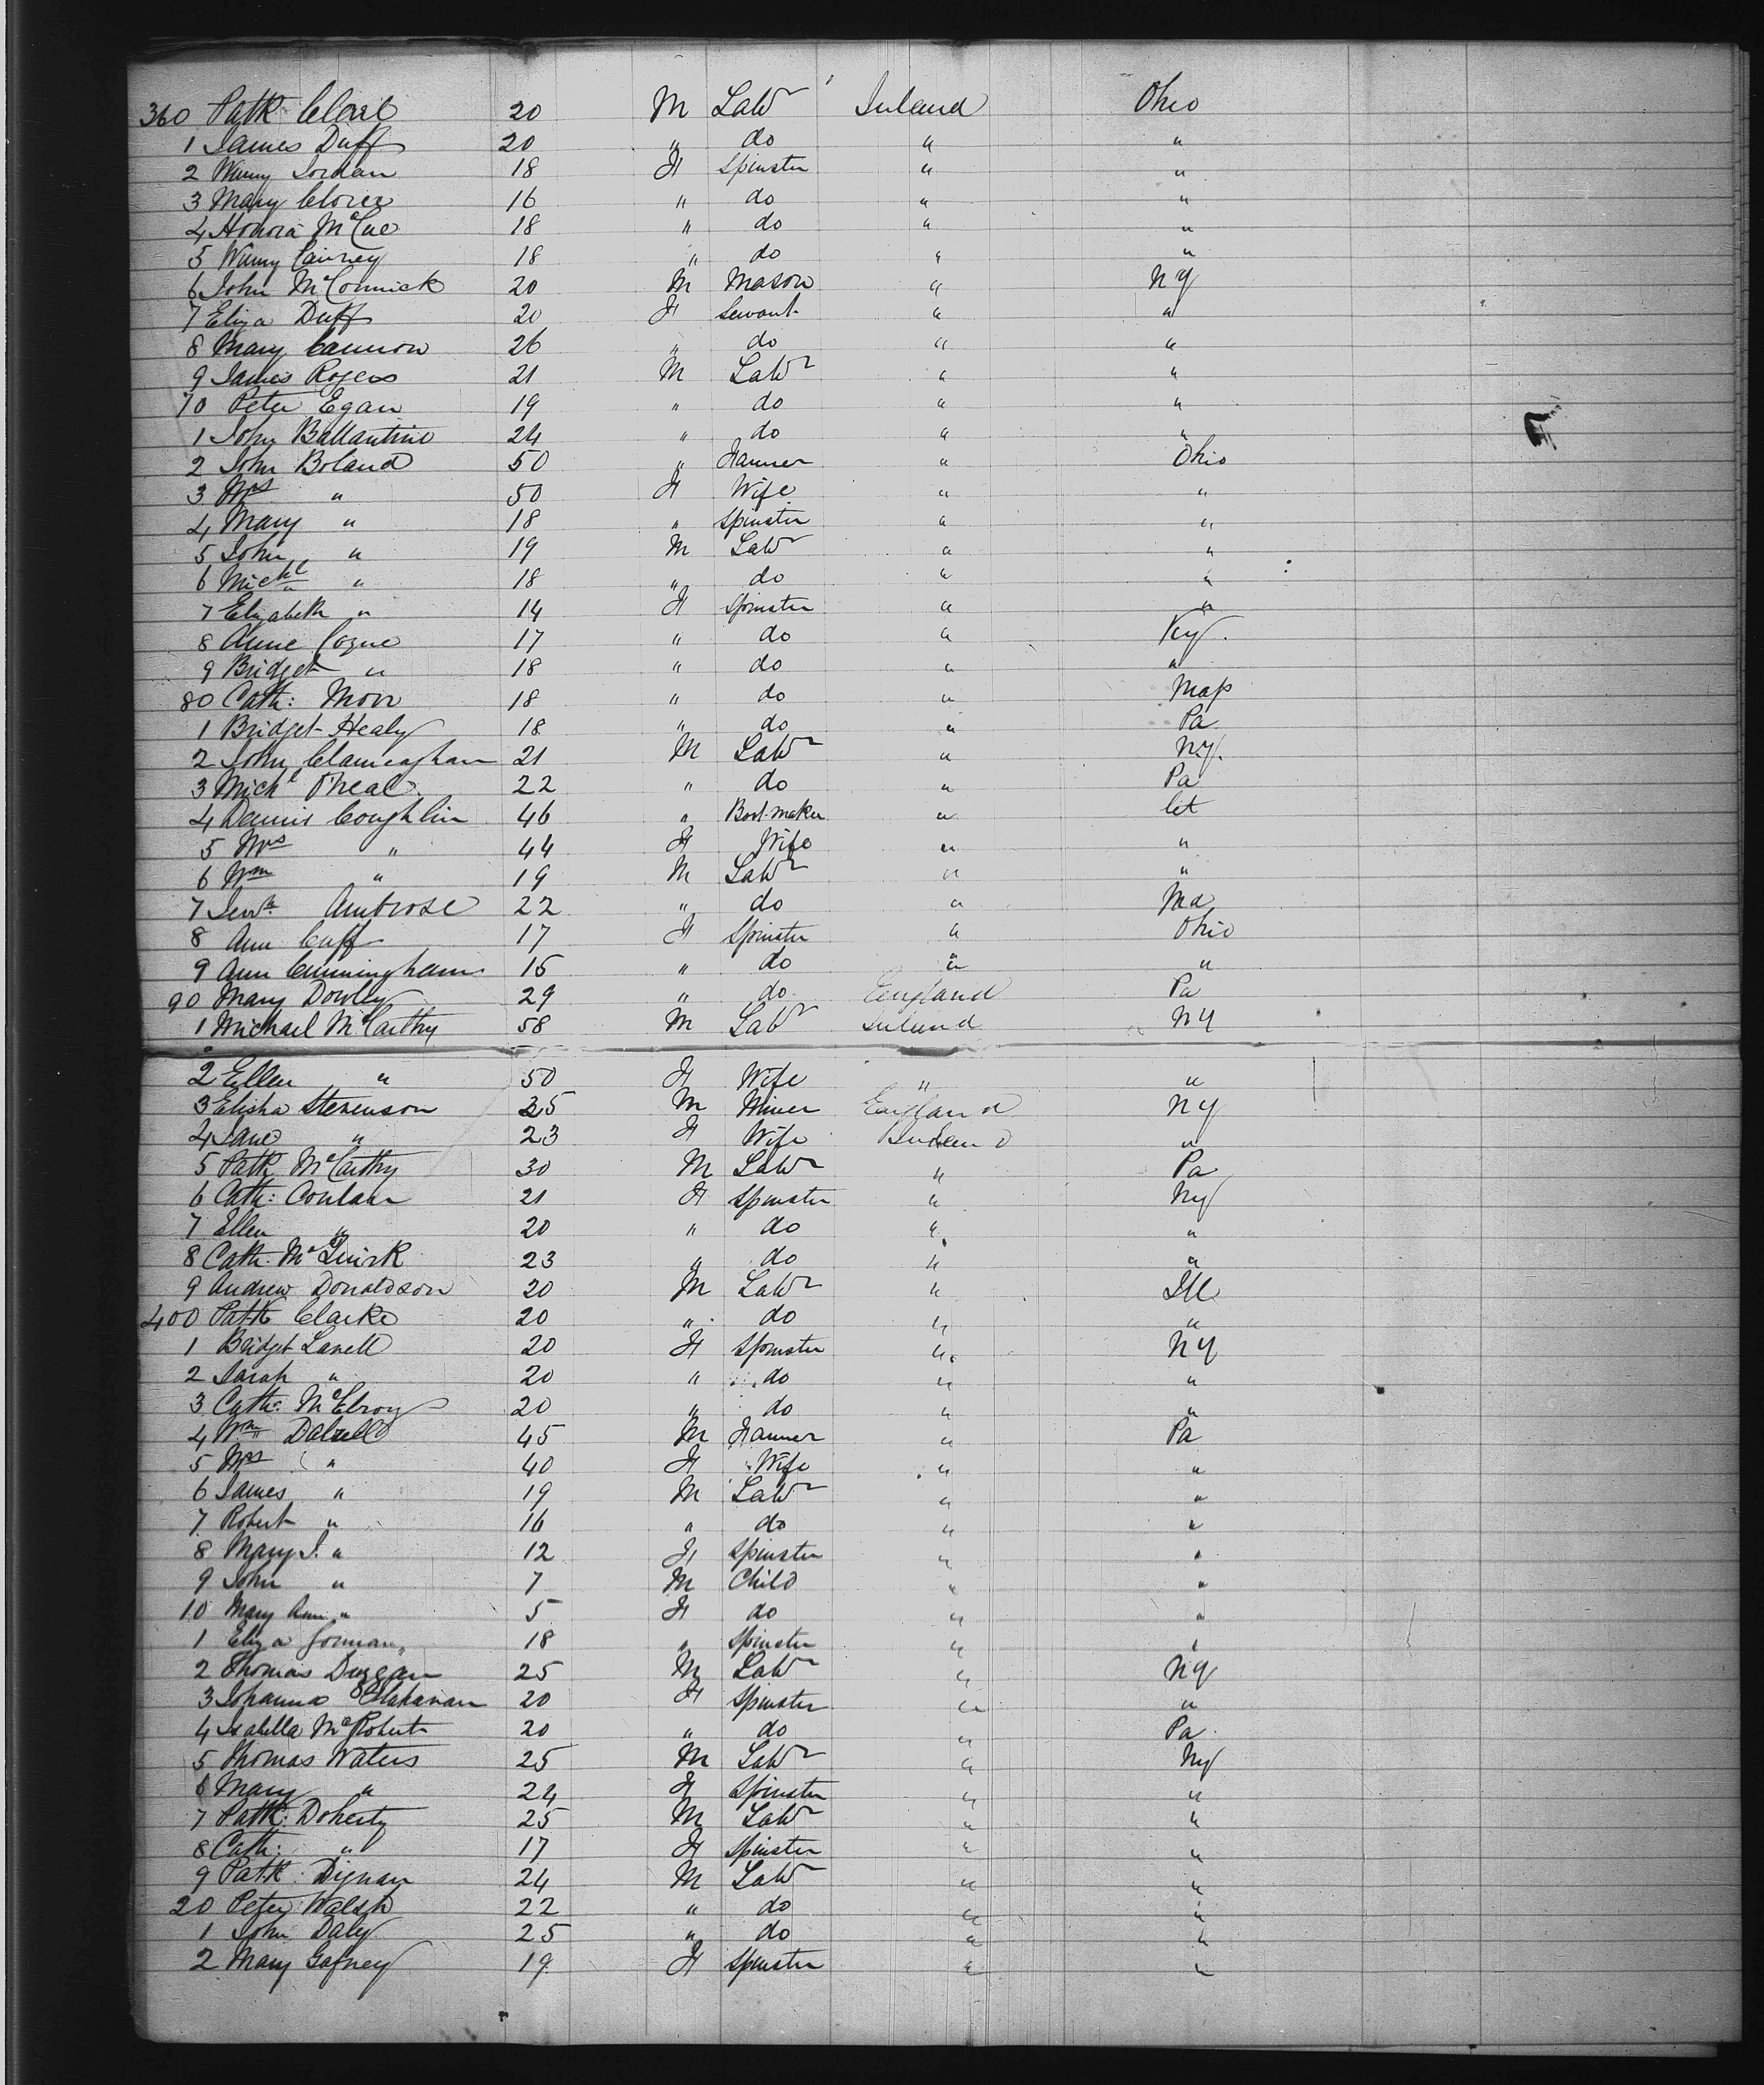 360 Patk 20 M Labr Ireland Ohio
1 James Duff 20 " do " "
2 Winny Jordan 18 F Spinster " "
3 Mary 16 " do " "
4 Honora McCue 18 " do " "
5 Winny 18 " do " "
6 John McCormick 20 M Mason " NY
7 Eliza Duff 20 F Servant " "
8 Mary Cannon 26 " do " "
9 James Rogers 21 M Labr " "
70 Peter Egan 19 " do " "
1 John Ballantine 24 " do " "
2 John Boland 50 " Farmer " Ohio
3 Mrs " 50 F Wife " "
4 Mary " 18 " Spinster " "
5 John " 19 M Labr " "
6 Michl " 18 " do " "
7 Elizabeth " 14 F Spinster " "
8 Anne Coyne 17 " do " Ky.
9 Bridget " 18 " do " "
80 Cath: 18 " do " Mass
1 Bridget Healy 18 " do " Pa
2 John 21 M Labr " NY.
3 Michl 22 " do " Pa
4 Dennis Coughlin 46 " Bootmaker " Ct
5 Mrs " 44 F Wife " "
6 Wm " 19 M Labr " "
7 Ambrose 22 " do " Ma
8 Ann Cuff 17 F Spinster " Ohio
9 Ann Cunningham 15 " do " "
90 Mary Dowley 29 " do England Pa
1 Michael McCarthy 58 M Labr Ireland NY
2 Ellen " 50 F Wife " "
3 Elisha Stevenson 25 M Miner England NY
4 Jane " 23 F Wife Ireland "
5 Patk McCarthy 30 M Labr " Pa
6 Cath: Conlan 21 F Spinster " NY
7 Ellen " 20 " do " "
8 Cath: McQuirk 23 " do " "
9 Andrew Donaldson 20 M Labr " Ill
400 Patk Clarke 20 " do " "
1 Bridget Lavell 20 F Spinster " NY
2 Sarah " 20 " do " "
3 Cath: McElroy 20 " do " "
4 Wm Dalzell 45 M Farmer " Pa
5 Mrs " 40 F Wife " "
6 James " 19 M Labr " "
7 Robert " 16 " do " "
8 Mary J. " 12 F Spinster " "
9 John " 7 M Child " "
10 Mary Ann " 5 F do " "
1 Eliza Gorman 18 " Spinster " "
2 Thomas Duggan 25 M Labr " NY
3 Johanna 20 F Spinster " "
4 Isabella McRobert 20 " do " Pa.
5 Thomas Waters 25 M Labr " NY
6 Mary " 24 F Spinster " "
7 Patk: Doherty 25 M Labr " "
8 Cath: " 17 F Spinster " "
9 Patk: Dignan 24 M Labr " "
20 Peter Walsh 22 " do " "
1 John Daly 25 " do " "
2 Mary Gafney 19 F Spinster " "